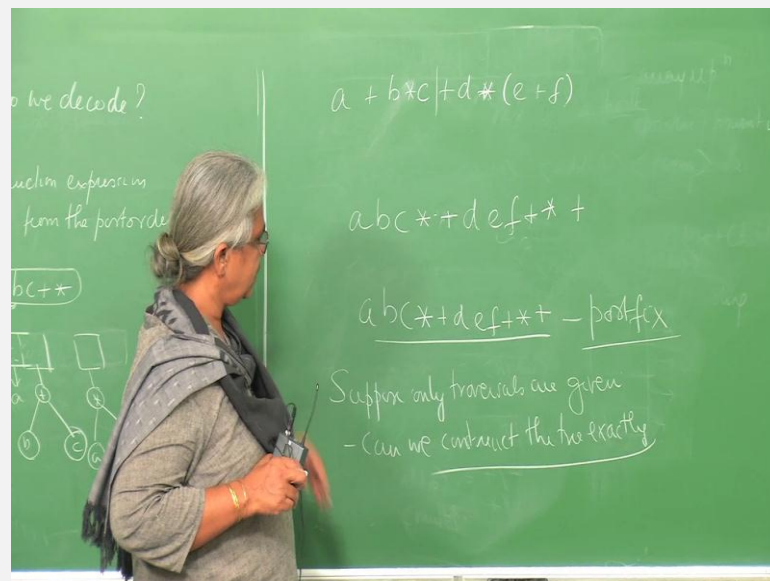 we decode?
expression
from the
bc+*
a
b
c
a + b*c|+d*(e+f)
abc*+def+*+
abc*+def+*+ – postfix
Suppose only traversals are given
- Can we construct the tree exactly